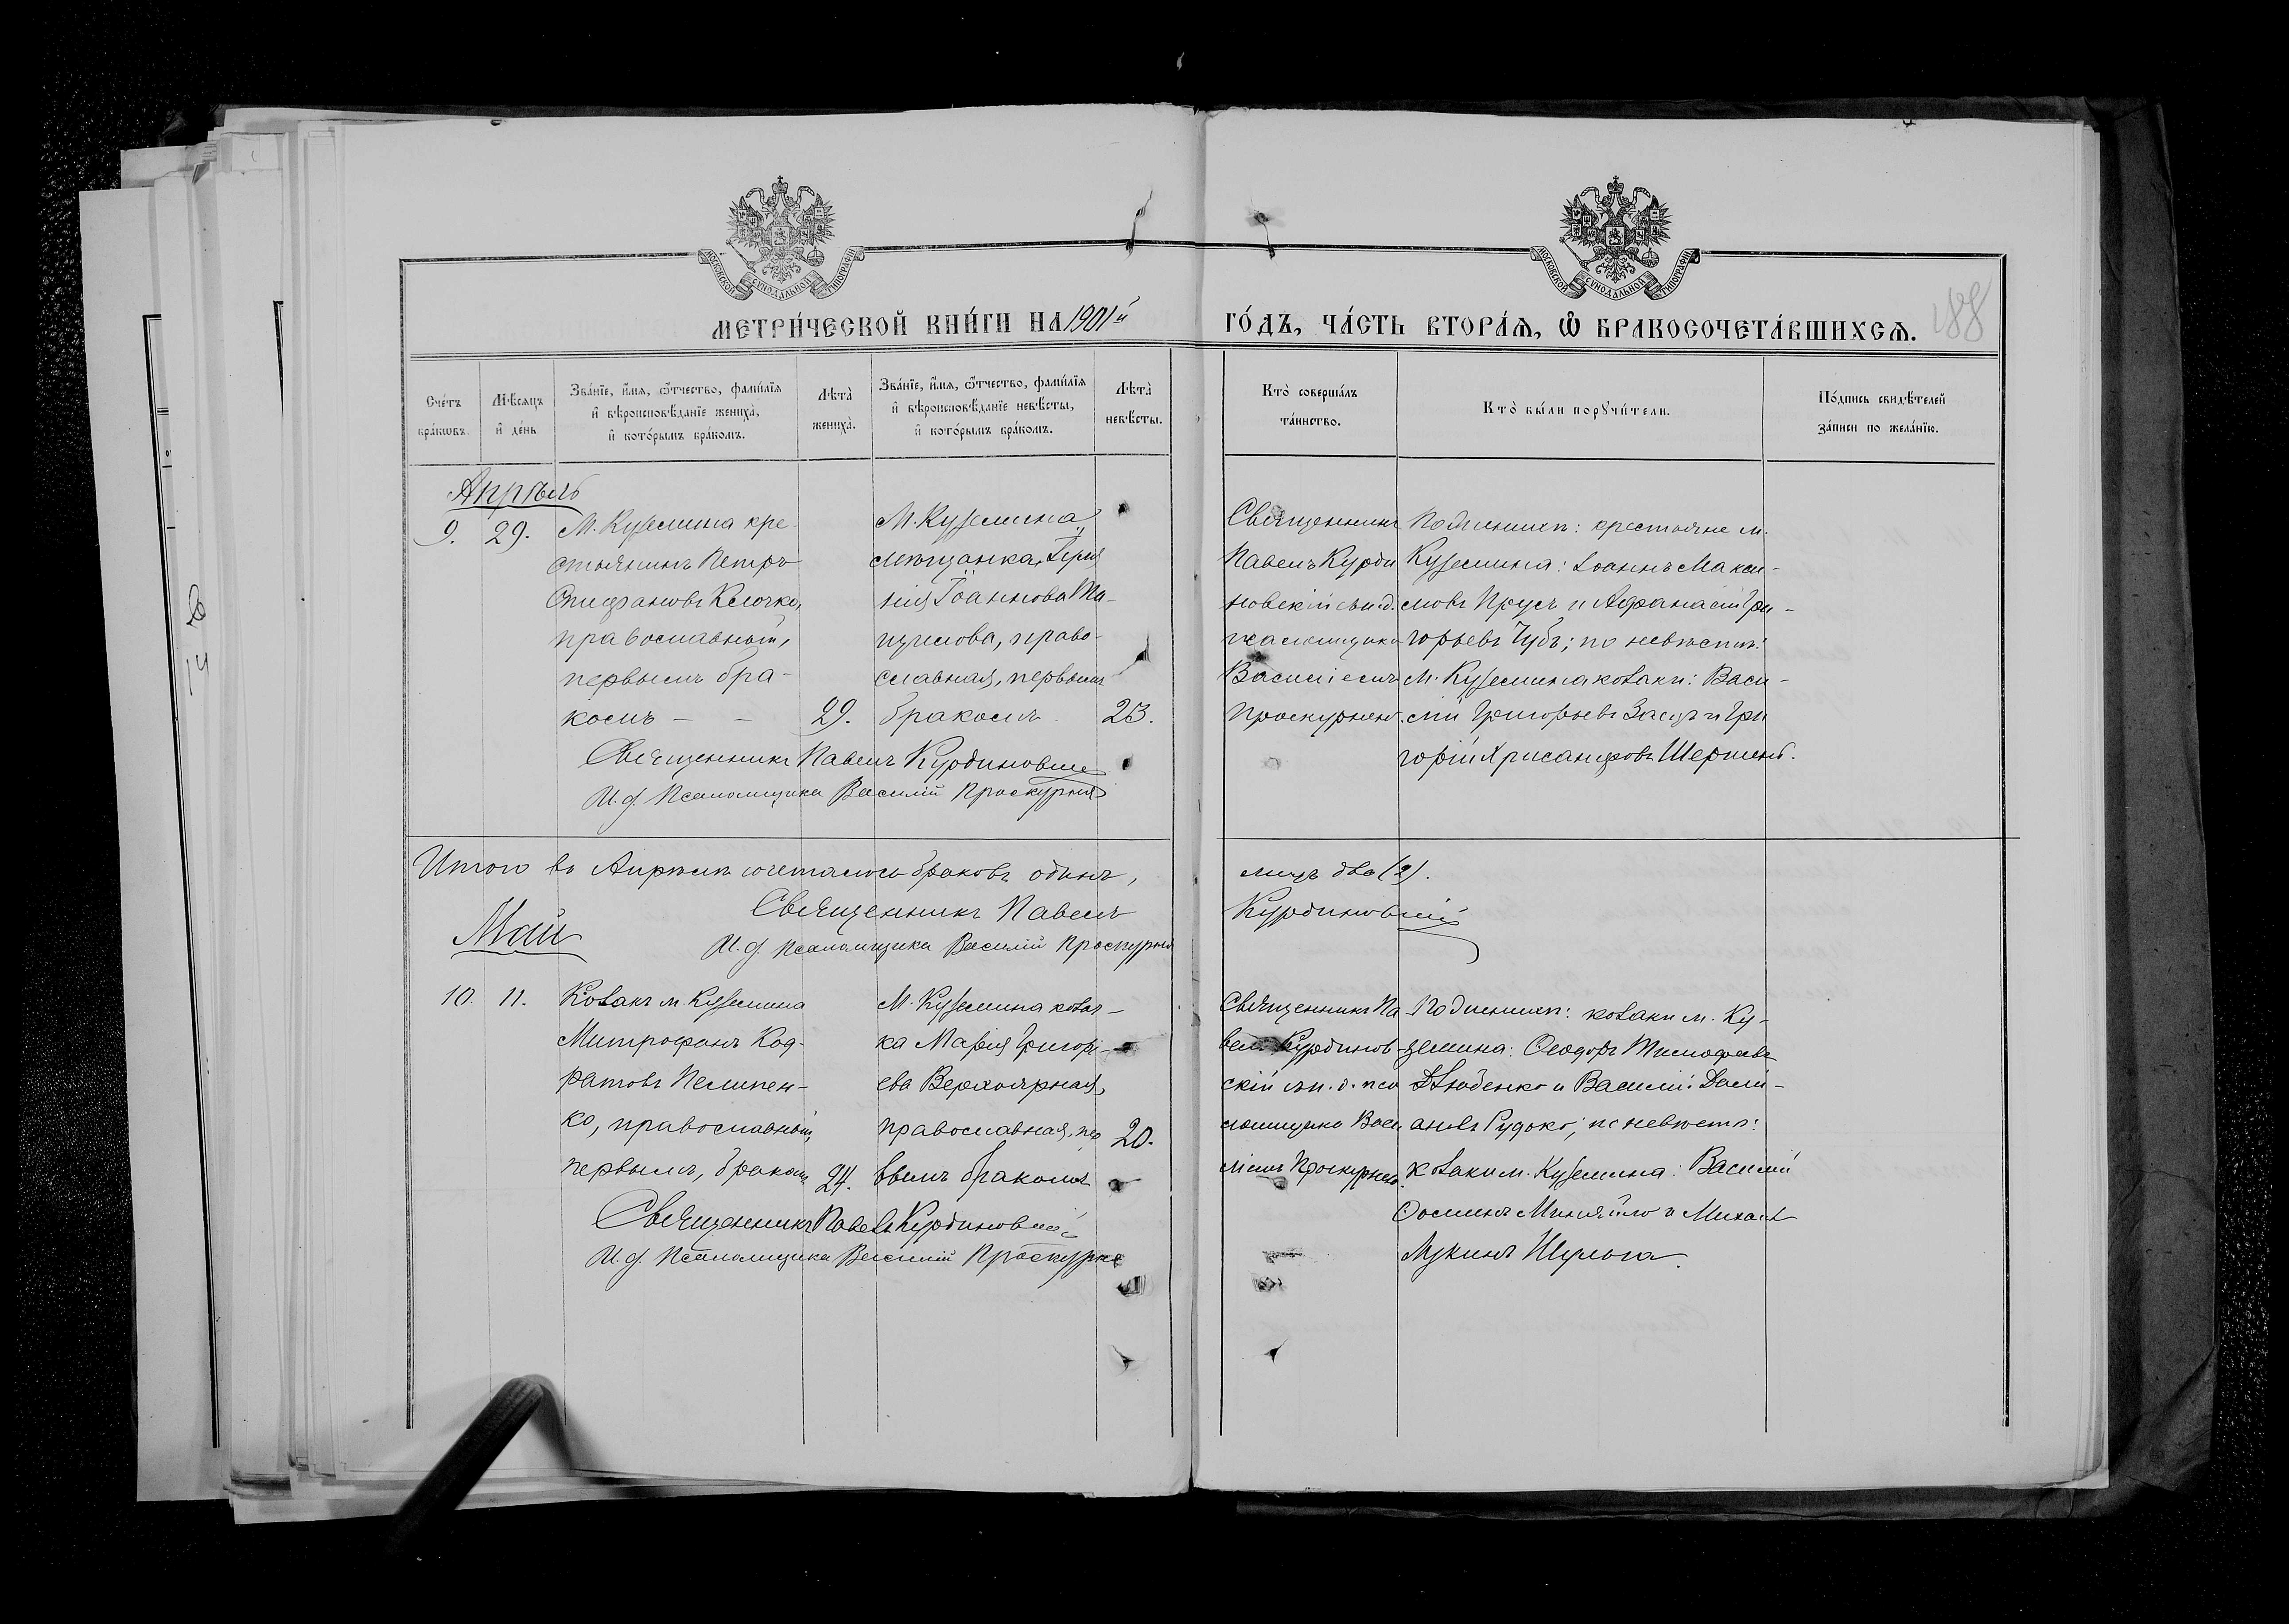 МЕТРИ́ЧЕСКОЙ КНИ́ГИ НА 1901й ГО́ДЪ, ЧА́СТЬ ВТОРА́Ѧ, Ѽ БРАКОСОЧЕТА́ВШИХСѦ.
188
МОСКОВСКОЙ СѴНОДАЛЬНОЙ ТИПОГРАФІИ
МОСКОВСКОЙ СѴНОДАЛЬНОЙ ТИПОГРАФІИ
Сче́тъ бра́кѡвъ.
Мѣ́сяцъ и҆ де́нь
Зва́нїе, и҆́мѧ, ѻ҆́тчество, фами́лїѧ
и҆ вѣроисповѣ́данїе жениха̀,
и҆ кото́рымъ бра́комъ.
Лѣта̀ жениха̀.
Зва́нїе, и҆́мѧ, ѻ҆́тчество, фами́лїѧ
и҆ вѣроисповѣ́данїе невѣ́сты,
и҆ кото́рымъ бра́комъ.
Лѣта̀ невѣ́сты.
Кто̀ соверша́лъ та́инство.
Кто̀ бы́ли порꙋчи́тели.
По́дпись свидѣ́телей за́писи по жела́нїю.
Апрѣль
9. 29.
М. Куземина кре-
стьянинъ Петръ
Епифановъ Клочко,
православный,
первымъ бра-
комъ – – 29.
М. Куземина
мѣщанка,
нія Іоаннова
православная, первымъ
бракомъ 23.
Священникъ
Павелъ Курди
новскій съ и. д.
псаломщика
Василіемъ
Проскурнею.
По женихѣ: крестьяне м.
Куземина: Іоаннъ Макси-
мовъ Прусъ и Афанасій Гри-
горьевъ Чубъ; по невѣстѣ:
м. Куземина козаки: Васи-
лій Григорьевъ Заецъ и Гри
горій Хрисанфовъ
Священникъ Павелъ Курдиновскій
И. д. Псаломщика Василій Проскурня
Итого въ Апрѣлѣ сочеталось браковъ одинъ, лицъ два (2).
Священникъ Павелъ Курдиновскій
И. д. Псаломщика Василій Проскурня
Май
10. 11.
Козакъ м. Куземина
Митрофанъ Код-
ратовъ Пелипен-
ко, православный,
первымъ, бракомъ 24.
М. Куземина козач-
ка Марія Григорі-
ева Верхоярная,
православная, пер
вымъ бракомъ 20.
Священникъ Па
велъ Курдинов-
скій съ и. д. пса
ломщика Васи
ліемъ Проскурнею.
По женихѣ: козаки м. Ку-
земина: Ѳеодоръ Тимофеевъ
Дзюбенко и Василій Дамі-
ановъ Рудько; по невѣстѣ:
козаки м. Куземина: Василій
Фоминъ Миняйло и Михаилъ
Лукинъ Шульга.
Священникъ Павелъ Курдиновскій
И. д. Псаломщика Василій Проскурня